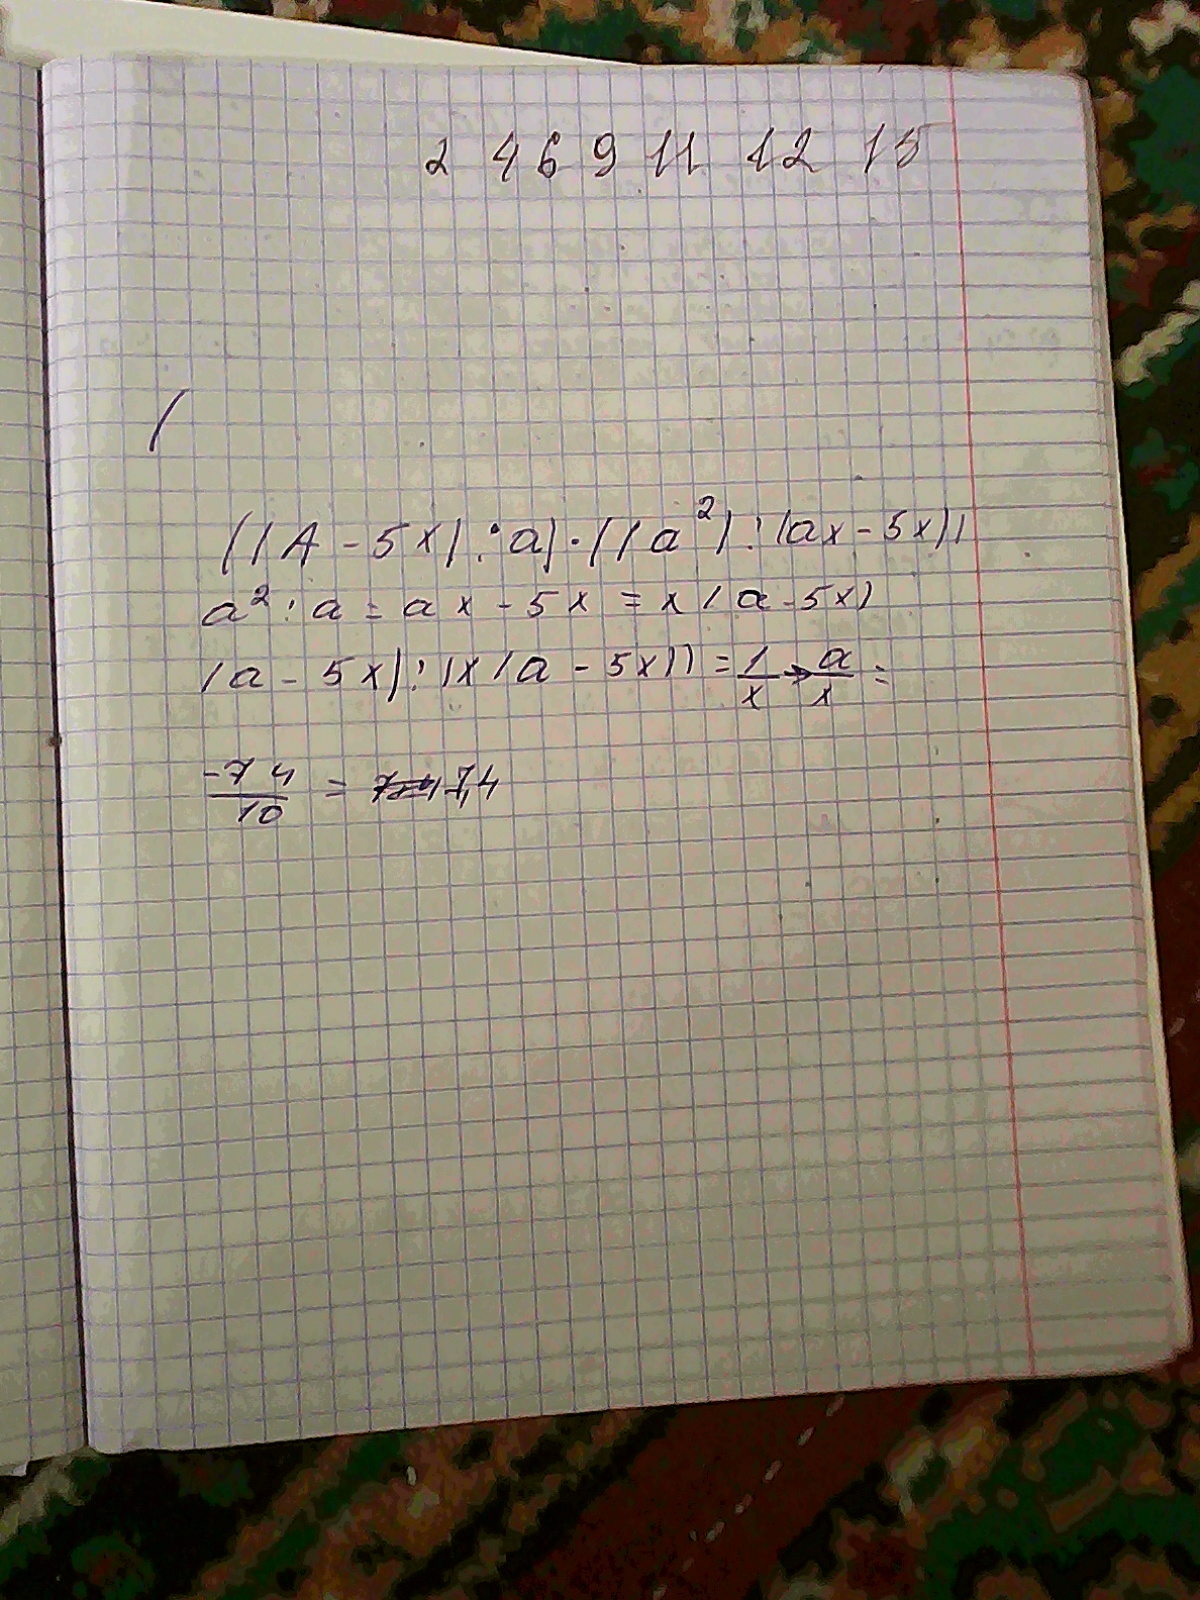 2 4 6 9 11 12 15
(
((A - 5x) : a) · ((a²) : (ax - 5x))
a² : a = ax - 5x = x(a - 5x)
(a - 5x) : (x(a - 5x)) = 1/x → a/x =
-74/10 = -7,4